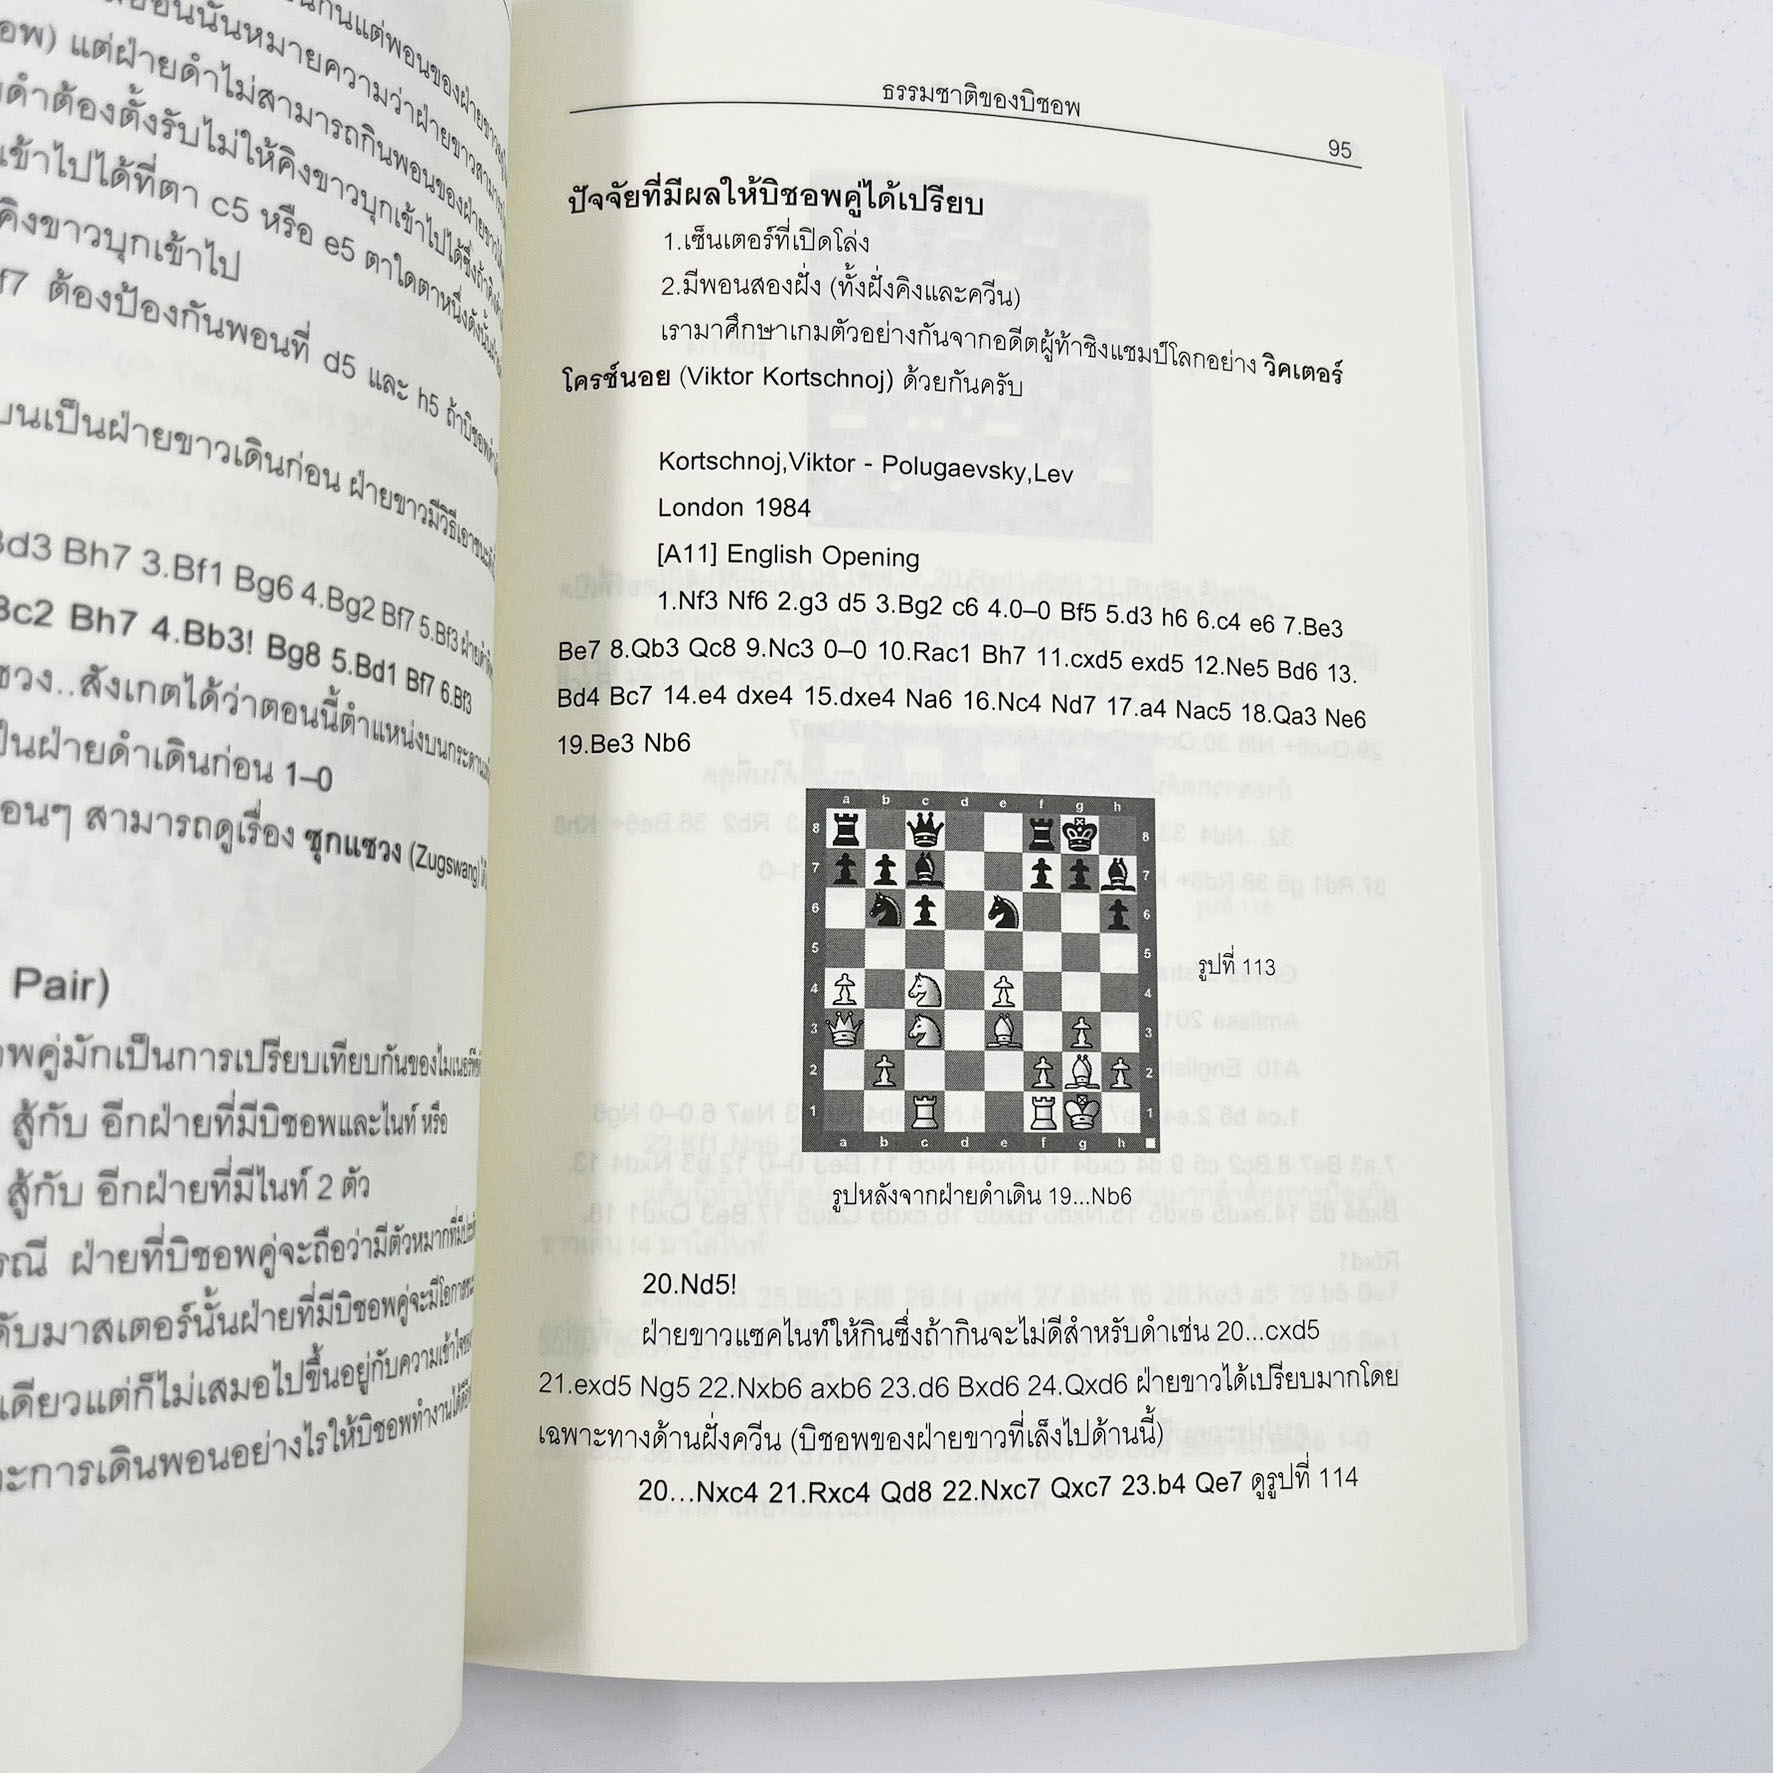 อพ) แต่ฝ่ายดำไม่สามารถกินพอนของฝ่ายขาว
ดำต้องตั้งรับไม่ให้คิงขาวบุกเข้าไปได้ซึ่งถ้าคิง
เข้าไปได้ที่ตา c5 หรือ e5 ตาใดตาหนึ่งดังนั้น
คิงขาวบุกเข้าไป
f7 ต้องป้องกันพอนที่ d5 และ h5 ถ้าบิชอพ
บนเป็นฝ่ายขาวเดินก่อน ฝ่ายขาวมีวิธีเอาชนะ
Bd3 Bh7 3.Bf1 Bg6 4.Bg2 Bf7 5.Bf3
Bc2 Bh7 4.Bb3! Bg8 5.Bd1 Bf7 6.Bf3
ชวง..สังเกตได้ว่าตอนนี้ตำแหน่งบนกระดาน
ป็นฝ่ายดำเดินก่อน 1–0
อนๆ สามารถดูเรื่อง ซุกแชวง (Zugswang)
Pair)
พคู่มักเป็นการเปรียบเทียบกันของไมเนอร์
สู้กับ อีกฝ่ายที่มีบิชอพและไนท์ หรือ
สู้กับ อีกฝ่ายที่มีไนท์ 2 ตัว
รณี ฝ่ายที่บิชอพคู่จะถือว่ามีตัวหมากที่มี
ดับมาสเตอร์นั้นฝ่ายที่มีบิชอพคู่จะมีโอกาส
เดียวแต่ก็ไม่เสมอไปขึ้นอยู่กับความเข้าใจ
ะการเดินพอนอย่างไรให้บิชอพทำงานได้ดี
ธรรมชาติของบิชอพ
95
ปัจจัยที่มีผลให้บิชอพคู่ได้เปรียบ
1.เซ็นเตอร์ที่เปิดโล่ง
2.มีพอนสองฝั่ง (ทั้งฝั่งคิงและควีน)
เรามาศึกษาเกมตัวอย่างกันจากอดีตผู้ท้าชิงแชมป์โลกอย่าง วิคเตอร์
โครช์นอย (Viktor Kortschnoj) ด้วยกันครับ
Kortschnoj,Viktor - Polugaevsky,Lev
London 1984
[A11] English Opening
1.Nf3 Nf6 2.g3 d5 3.Bg2 c6 4.0–0 Bf5 5.d3 h6 6.c4 e6 7.Be3
Be7 8.Qb3 Qc8 9.Nc3 0–0 10.Rac1 Bh7 11.cxd5 exd5 12.Ne5 Bd6 13.
Bd4 Bc7 14.e4 dxe4 15.dxe4 Na6 16.Nc4 Nd7 17.a4 Nac5 18.Qa3 Ne6
19.Be3 Nb6
a b c d e f g h
8 8
7 7
6 6
5 5
4 4
3 3
2 2
1 1
a b c d e f g h
รูปที่ 113
รูปหลังจากฝ่ายดำเดิน 19...Nb6
20.Nd5!
ฝ่ายขาวแซคไนท์ให้กินซึ่งถ้ากินจะไม่ดีสำหรับดำเช่น 20...cxd5
21.exd5 Ng5 22.Nxb6 axb6 23.d6 Bxd6 24.Qxd6 ฝ่ายขาวได้เปรียบมากโดย
เฉพาะทางด้านฝั่งควีน (บิชอพของฝ่ายขาวที่เล็งไปด้านนี้)
20...Nxc4 21.Rxc4 Qd8 22.Nxc7 Qxc7 23.b4 Qe7 ดูรูปที่ 114